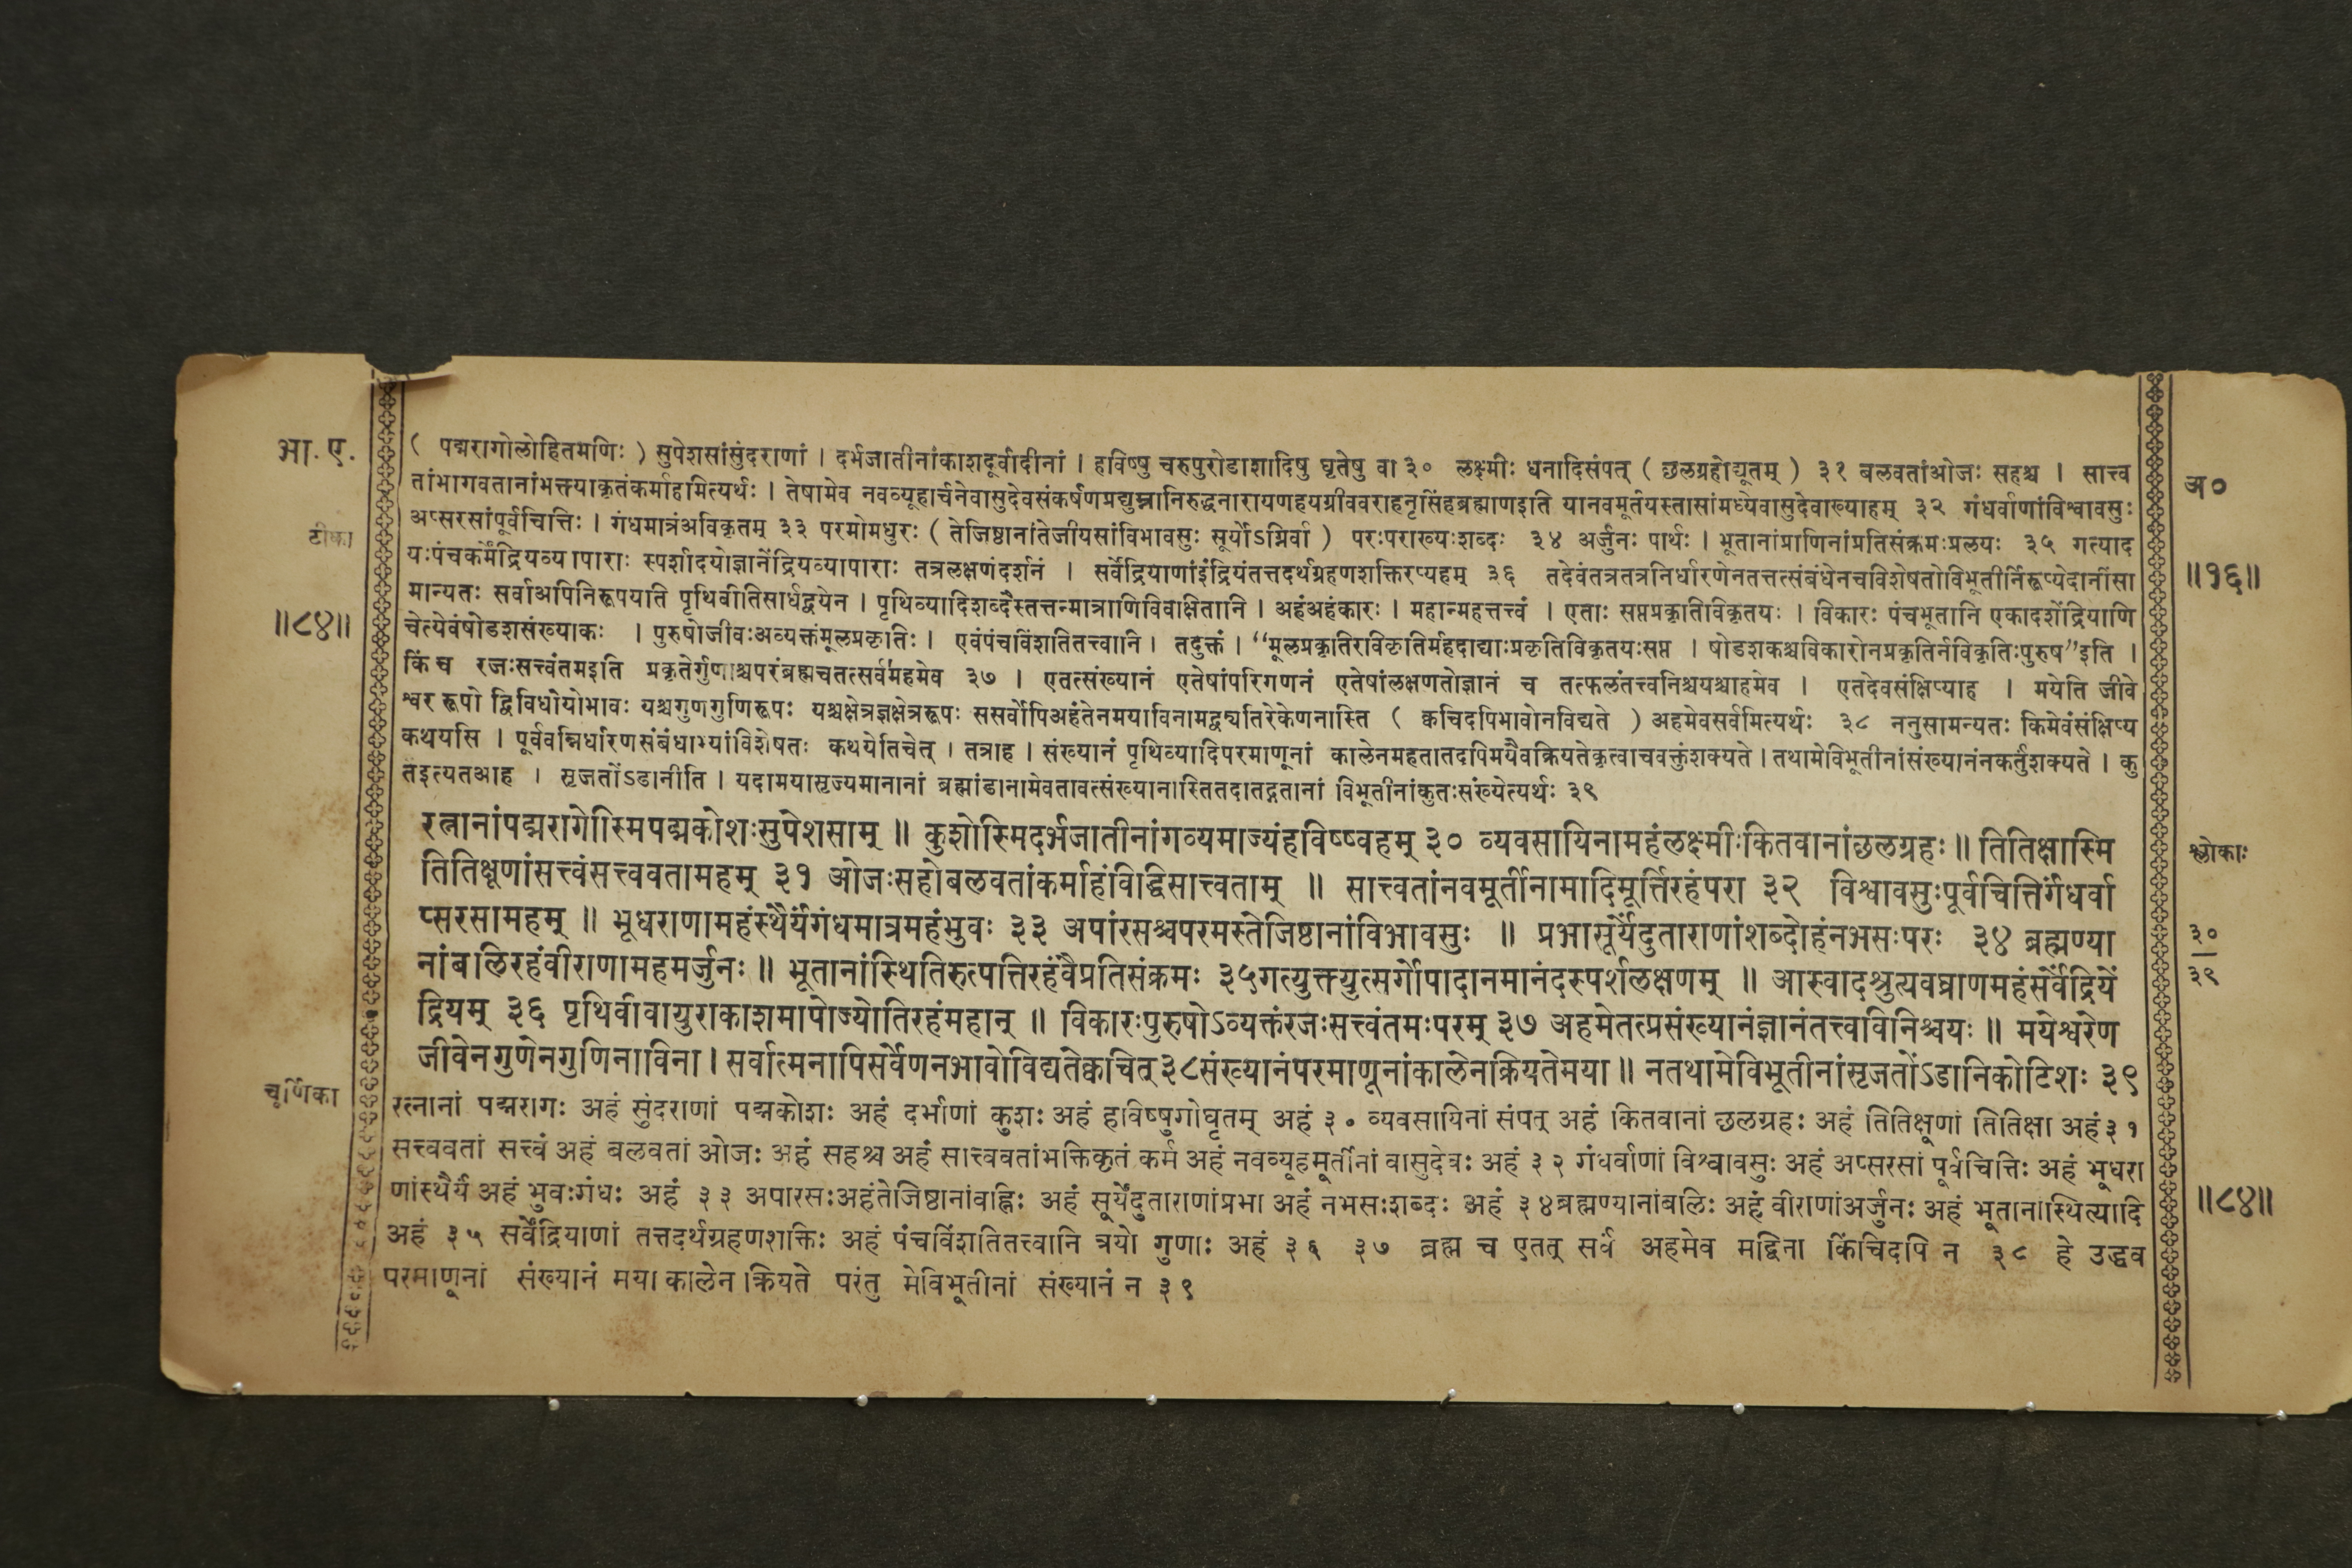 भा. ए.
( पद्मरागोलोहितमणिः ) सुपेशसांसुंदराणां । दर्भजातीनांकाशदूर्वादीनां । हविष्षु चरुपुरोडाशादिषु घृतेषु वा ३० लक्ष्मीः धनादिसंपत् ( छलग्रहोद्यूतम् ) ३१ बलवतांओजः सहश्च । सात्त्व
तांभागवतानांभक्त्याकृतंकर्माहमित्यर्थः । तेषामेव नवव्यूहार्चनेवासुदेवसंकर्षणप्रद्युम्नानिरुद्धनारायणहयग्रीववराहनृसिंहब्रह्माणइति यानवमूर्तयस्तासांमध्येवासुदेवाख्याहम् ३२ गंधर्वाणांविश्वावसुः
अ०
टीका
अप्सरसांपूर्वचित्तिः । गंधमात्रंअविकृतम् ३३ परमोमधुरः ( तेजिष्ठानांतेजीयसांविभावसुः सूर्योऽग्निर्वा ) परःपराख्यःशब्दः ३४ अर्जुनः पार्थः । भूतानांप्राणिनांप्रतिसंक्रमःप्रलयः ३५ गत्याद
यःपंचकर्मेंद्रियव्यापाराः स्पर्शादयोज्ञानेंद्रियव्यापाराः तत्रलक्षणंदर्शनं । सर्वेंद्रियाणांइंद्रियंतत्तदर्थग्रहणशक्तिरप्यहम् ३६ तदेवंतत्रतत्रनिर्धारणेनतत्तत्संबंधेनचविशेषतोविभूतीर्निरूप्येदानींसा
॥१६॥
मान्यतः सर्वाअपिनिरूपयति पृथिवीतिसार्धद्वयेन । पृथिव्यादिशब्दैस्तत्तन्मात्राणिविवाक्षितानि । अहंअहंकारः । महान्महत्तत्त्वं । एताः सप्तप्रकृतिविकृतयः । विकारः पंचभूतानि एकादशेंद्रियाणि
॥८४॥
चेत्येवंषोडशसंख्याकः । पुरुषोजीवःअव्यक्तंमूलप्रकृतिः । एवंपंचविंशतितत्त्वानि । तदुक्तं । “मूलप्रकृतिरविकृतिर्महदाद्याःप्रकृतिविकृतयःसप्त । षोडशकश्चविकारोनप्रकृतिर्नविकृतिःपुरुष”इति ।
किं च रजःसत्त्वंतमइति प्रकृतेर्गुणाश्चपरंब्रह्मचतत्सर्वमहमेव ३७ । एतत्संख्यानं एतेषांपरिगणनं एतेषांलक्षणतोज्ञानं च तत्फलंतत्त्वनिश्चयश्चाहमेव । एतदेवसंक्षिप्याह । मयेति जीवे
श्वर रूपो द्विविधोयोभावः यश्चगुणगुणिरूपः यश्चक्षेत्रज्ञक्षेत्ररूपः ससर्वोपिअहंतेनमयाविनामद्व्यतिरेकेणनास्ति ( क्वचिदपिभावोनविद्यते ) अहमेवसर्वमित्यर्थः ३८ ननुसामन्यतः किमेवंसंक्षिप्य
कथयसि । पूर्ववन्निर्धारणसंबंधाभ्यांविशेषतः कथयेतिचेत् । तत्राह । संख्यानं पृथिव्यादिपरमाणूनां कालेनमहतातदपिमयैवक्रियतेकृत्वाचवक्तुंशक्यते । तथामेविभूतीनांसंख्यानंनकर्तुंशक्यते । कु
तइत्यतआह । सृजतोंऽडानीति । यदामयासृज्यमानानां ब्रह्मांडानामेवतावत्संख्यानास्तितदातद्गतानां विभूतीनांकुतःसंख्येत्यर्थः ३९
रत्नानांपद्मरागोस्मिपद्मकोशःसुपेशसाम् ॥ कुशोस्मिदर्भजातीनांगव्यमाज्यंहविष्ष्वहम् ३० व्यवसायिनामहंलक्ष्मीःकितवानांछलग्रहः ॥ तितिक्षास्मि
श्लोकाः
तितिक्षूणांसत्त्वंसत्त्ववतामहम् ३१ ओजःसहोबलवतांकर्माहंविद्धिसात्त्वताम् ॥ सात्त्वतांनवमूर्तीनामादिमूर्त्तिरहंपरा ३२ विश्वावसुःपूर्वचित्तिर्गंधर्वा
प्सरसामहम् ॥ भूधराणामहंस्थैर्यंगंधमात्रमहंभुवः ३३ अपांरसश्चपरमस्तेजिष्ठानांविभावसुः ॥ प्रभासूर्येंदुताराणांशब्दोहंनभसःपरः ३४ ब्रह्मण्या
३०
नांबलिरहंवीराणामहमर्जुनः ॥ भूतानांस्थितिरुत्पत्तिरहंवैप्रतिसंक्रमः ३५गत्युक्त्युत्सर्गोपादानमानंदस्पर्शलक्षणम् ॥ आस्वादश्रुत्यवघ्राणमहंसर्वेंद्रियें
३९
द्रियम् ३६ पृथिवीवायुराकाशमापोज्योतिरहंमहान् ॥ विकारःपुरुषोऽव्यक्तंरजःसत्त्वंतमःपरम् ३७ अहमेतत्प्रसंख्यानंज्ञानंतत्त्वविनिश्चयः ॥ मयेश्वरेण
जीवेनगुणेनगुणिनाविना । सर्वात्मनापिसर्वेणनभावोविद्यतेक्वचित् ३८संख्यानंपरमाणूनांकालेनक्रियतेमया ॥ नतथामेविभूतीनांसृजतोंऽडानिकोटिशः ३९
चूर्णिका
रत्नानां पद्मरागः अहं सुंदराणां पद्मकोशः अहं दर्भाणां कुशः अहं हविष्षुगोघृतम् अहं ३० व्यवसायिनां संपत् अहं कितवानां छलग्रहः अहं तितिक्षूणां तितिक्षा अहं३१
सत्त्ववतां सत्त्वं अहं बलवतां ओजः अहं सहश्च अहं सात्त्ववतांभक्तिकृतं कर्म अहं नवव्यूहमूर्तीनां वासुदेवः अहं ३२ गंधर्वाणां विश्वावसुः अहं अप्सरसां पूर्वचित्तिः अहं भूधरा
णांस्थैर्यं अहं भुवःगंधः अहं ३३ अपारसःअहंतेजिष्ठानांवह्निः अहं सूर्येंदुताराणांप्रभा अहं नभसःशब्दः अहं ३४ब्रह्मण्यानांबलिः अहं वीराणांअर्जुनः अहं भूतानांस्थित्यादि
॥८४॥
अहं ३५ सर्वेंद्रियाणां तत्तदर्थग्रहणशक्तिः अहं पंचविंशतितत्त्वानि त्रयो गुणाः अहं ३६ ३७ ब्रह्म च एतत् सर्वं अहमेव मद्विना किंचिदपि न ३८ हे उद्धव
परमाणूनां संख्यानं मया कालेन क्रियते परंतु मेविभूतीनां संख्यानं न ३९